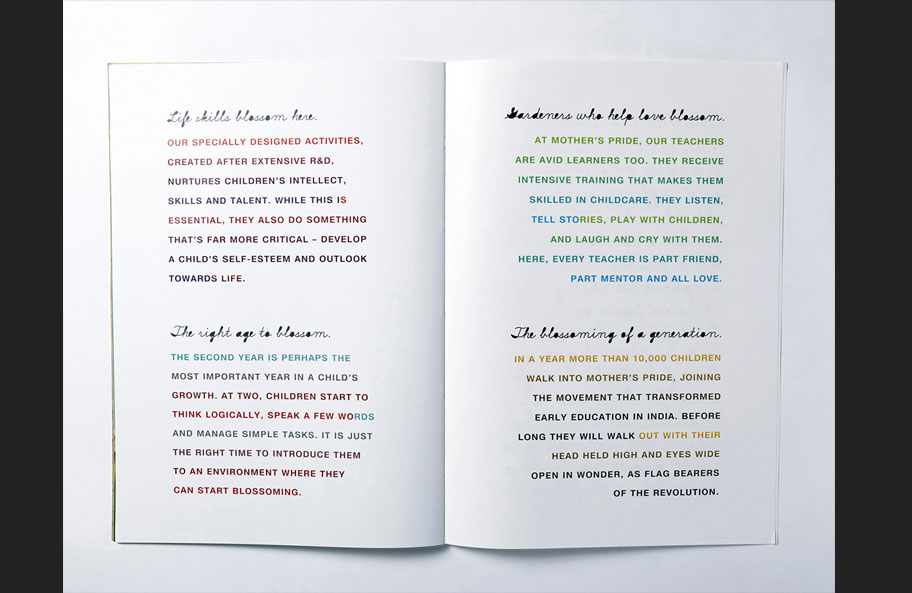 Life skills blossom here.
OUR SPECIALLY DESIGNED ACTIVITIES,
CREATED AFTER EXTENSIVE R&D,
NURTURES CHILDREN'S INTELLECT,
SKILLS AND TALENT. WHILE THIS IS
ESSENTIAL, THEY ALSO DO SOMETHING
THAT'S FAR MORE CRITICAL – DEVELOP
A CHILD'S SELF-ESTEEM AND OUTLOOK
TOWARDS LIFE.
The right age to blossom.
THE SECOND YEAR IS PERHAPS THE
MOST IMPORTANT YEAR IN A CHILD'S
GROWTH. AT TWO, CHILDREN START TO
THINK LOGICALLY, SPEAK A FEW WORDS
AND MANAGE SIMPLE TASKS. IT IS JUST
THE RIGHT TIME TO INTRODUCE THEM
TO AN ENVIRONMENT WHERE THEY
CAN START BLOSSOMING.
Gardeners who help love blossom.
AT MOTHER'S PRIDE, OUR TEACHERS
ARE AVID LEARNERS TOO. THEY RECEIVE
INTENSIVE TRAINING THAT MAKES THEM
SKILLED IN CHILDCARE. THEY LISTEN,
TELL STORIES, PLAY WITH CHILDREN,
AND LAUGH AND CRY WITH THEM.
HERE, EVERY TEACHER IS PART FRIEND,
PART MENTOR AND ALL LOVE.
The blossoming of a generation.
IN A YEAR MORE THAN 10,000 CHILDREN
WALK INTO MOTHER'S PRIDE, JOINING
THE MOVEMENT THAT TRANSFORMED
EARLY EDUCATION IN INDIA. BEFORE
LONG THEY WILL WALK OUT WITH THEIR
HEAD HELD HIGH AND EYES WIDE
OPEN IN WONDER, AS FLAG BEARERS
OF THE REVOLUTION.